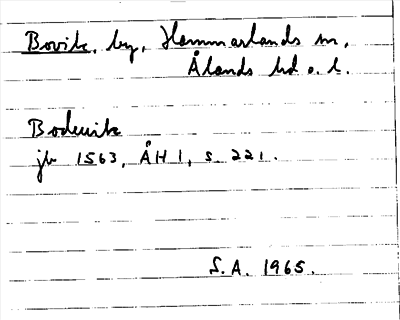 Bovik, by, Hammarlands sn,
Ålands hd o. l.
Bodeuik
jb 1563, ÅH 1, s. 221.
S.A. 1965.